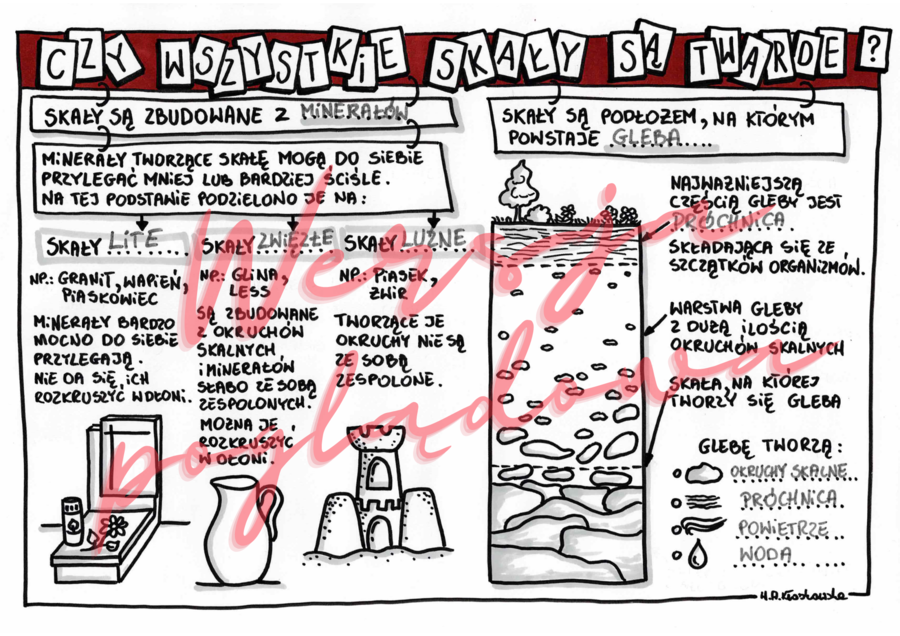 CZY WSZYSTKIE SKAŁY SĄ TWARDE?
SKAŁY SĄ ZBUDOWANE Z MINERAŁÓW
MINERAŁY TWORZĄCE SKAŁĘ MOGĄ DO SIEBIE
PRZYLEGAĆ MNIEJ LUB BARDZIEJ ŚCIŚLE.
NA TEJ PODSTANIE PODZIELONO JE NA:
SKAŁY LITE
NP.: GRANIT, WAPIEŃ,
PIASKOWIEC
MINERAŁY BARDZO
MOCNO DO SIEBIE
PRZYLEGAJĄ.
NIE DA SIĘ, ICH
ROZKRUSZYĆ W DŁONI.
SKAŁY ZWIĘZŁE
NP.: GLINA,
LESS
SĄ ZBUDOWANE
Z OKRUCHÓW
SKALNYCH
I MINERAŁÓW
SŁABO ZE SOBĄ
ZESPOLONYCH.
MOŻNA JE
ROZKRUSZYĆ
W DŁONI.
SKAŁY LUŹNE
NP.: PIASEK,
ŻWIR
TWORZĄCE JE
OKRUCHY NIE SĄ
ZE SOBĄ
ZESPOLONE.
SKAŁY SĄ PODŁOŻEM, NA KTÓRYM
POWSTAJE GLEBA....
NAJWAŻNIEJSZĄ
CZĘŚCIĄ GLEBY JEST
PRÓCHNICA.
SKŁADAJĄCA SIĘ ZE
SZCZĄTKÓW ORGANIZMÓW.
WARSTWA GLEBY
Z DUŻĄ ILOŚCIĄ
OKRUCHÓW SKALNYCH
SKAŁA, NA KTÓREJ
TWORZY SIĘ GLEBA
GLEBĘ TWORZĄ:
OKRUCHY SKALNE...
PRÓCHNICA
POWIETRZE
WODA
Wersja
poglądowa